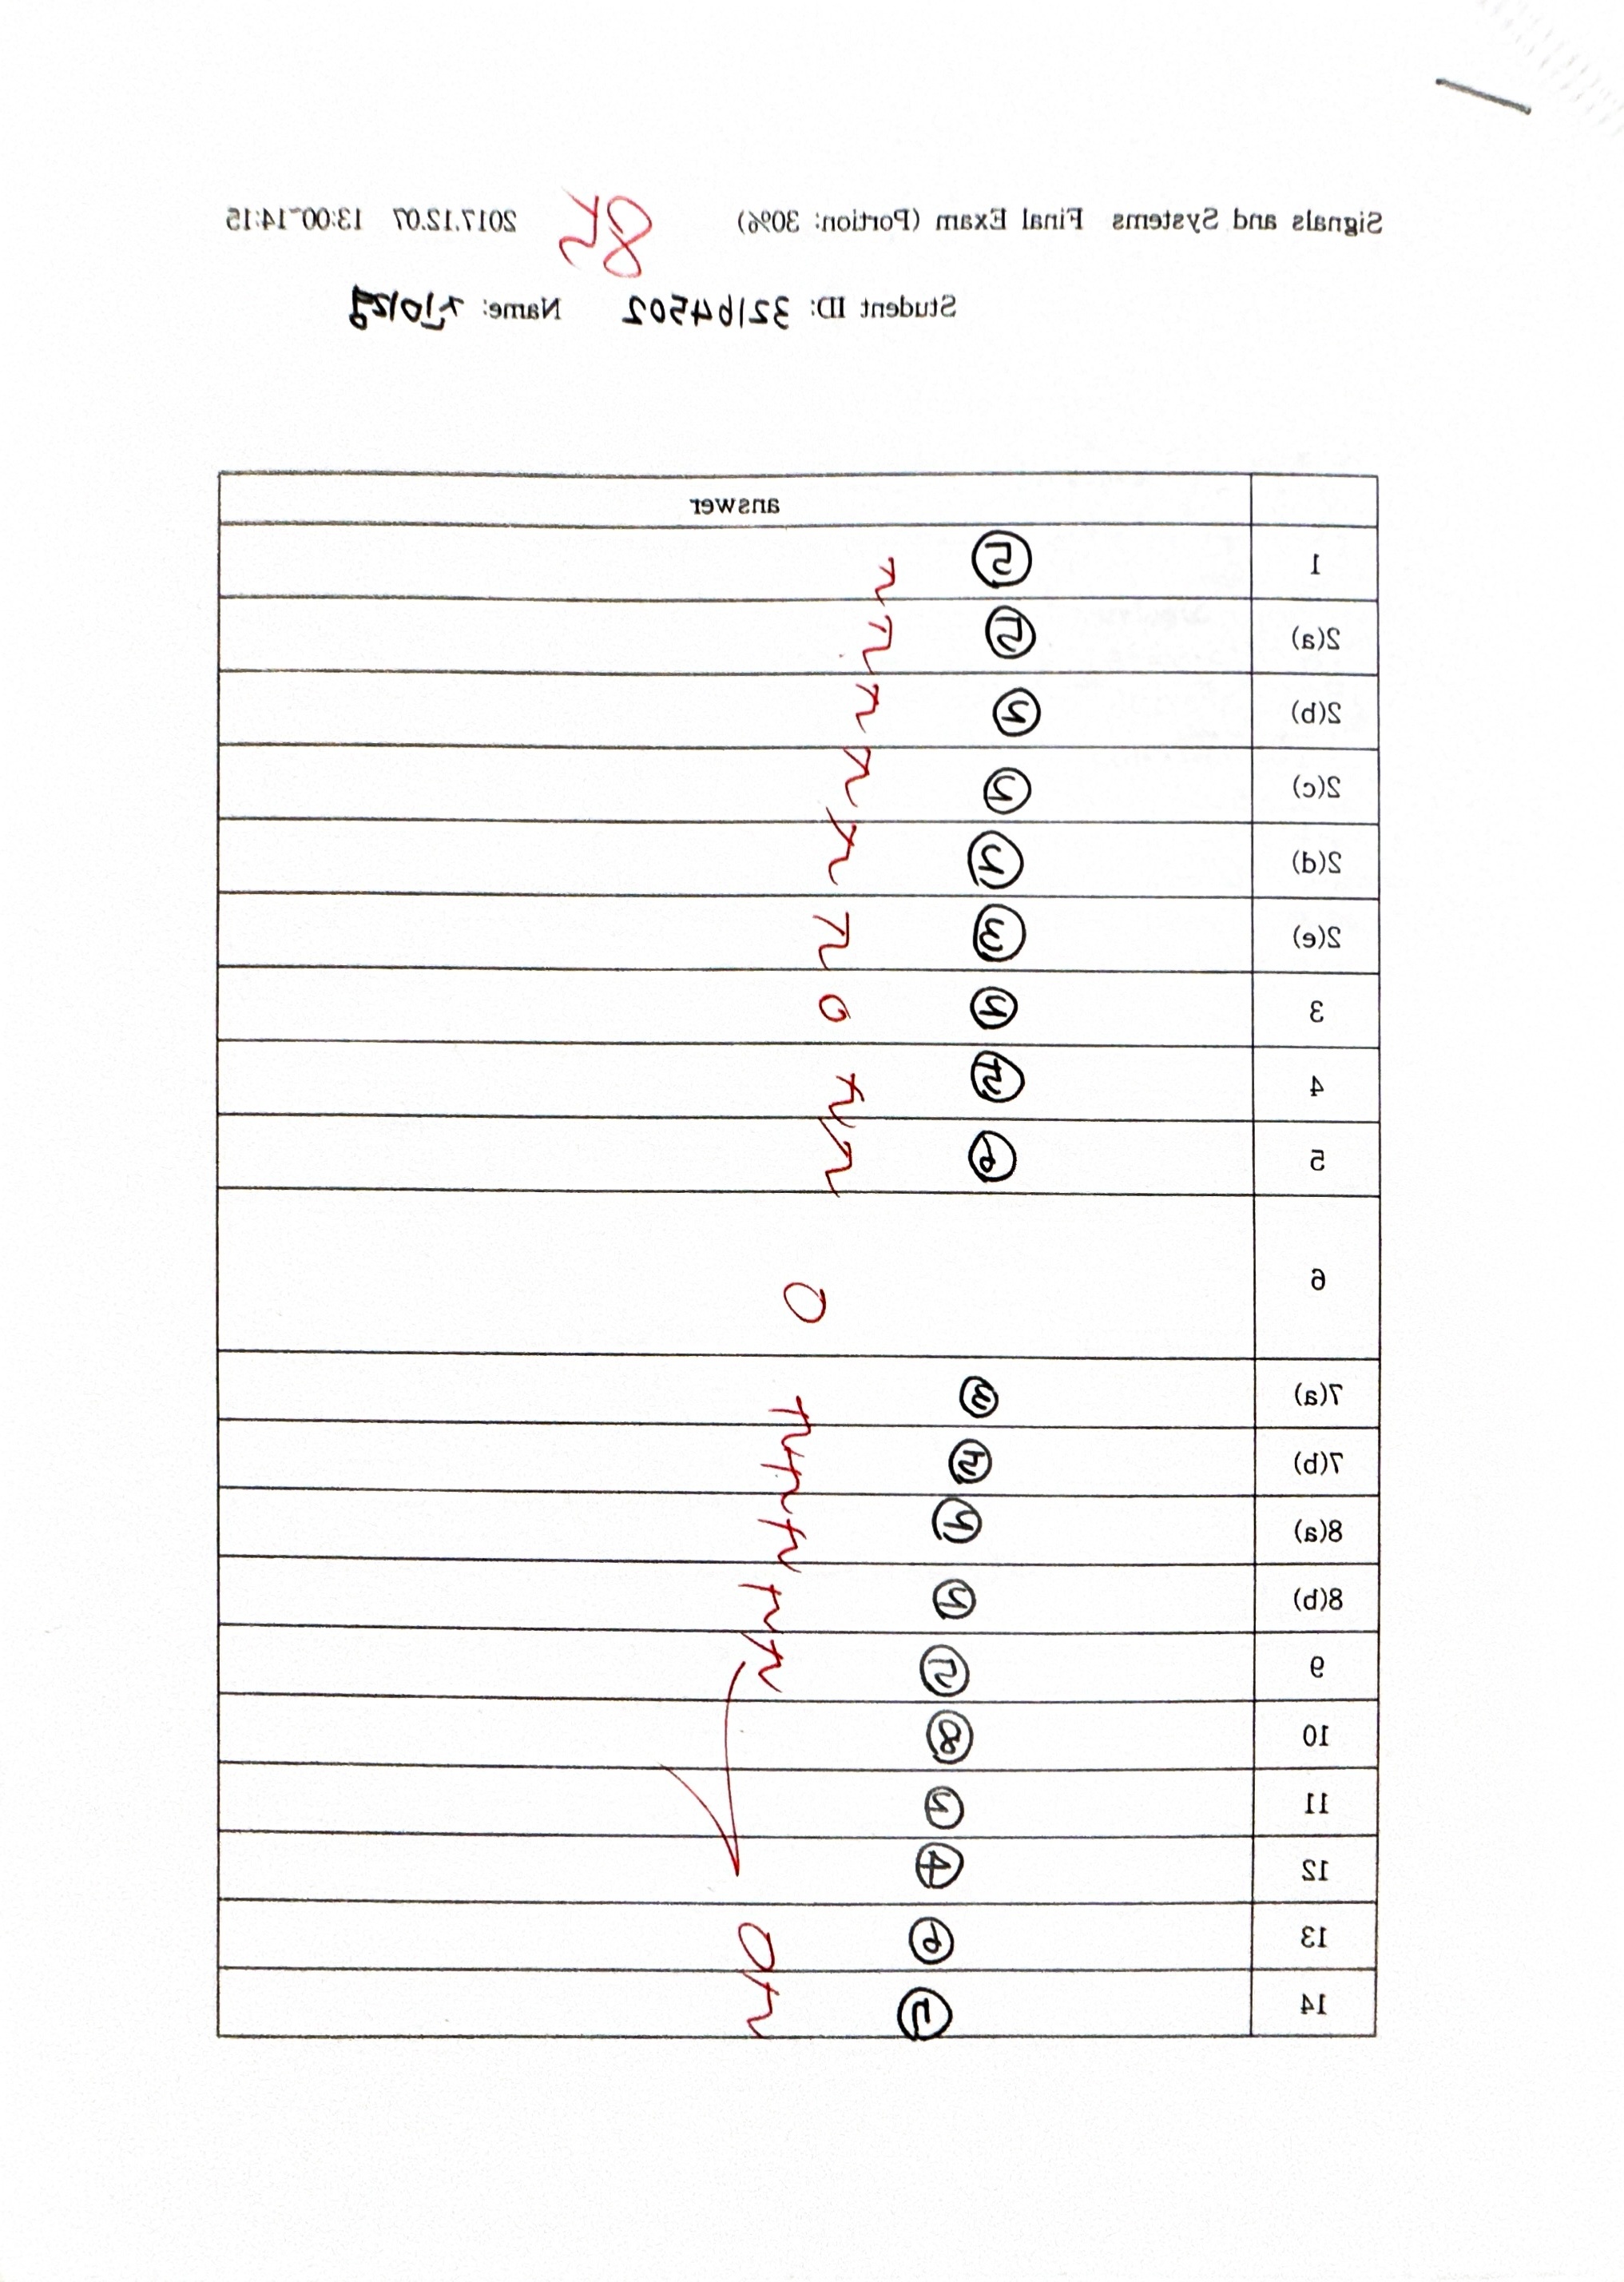 Signals and Systems Final Exam (Portion: 30%) 85 2017.12.07 13:00~14:15
Student ID: 32164502 Name:
answer
1 ⑤ 5
2(a) ⑤ 5
2(b) 5
2(c) 5
2(d) 5
2(e) ③ 5
3 0
4 ⑤ 5
5 ⑥ 5
6 0
7(a) ③ 5
7(b) ⑤ 5
8(a) 5
8(b) 5
9 ⑤ 5
10 ⑧
11
12 ④
13 ⑥ 0
14 ⑤ 5